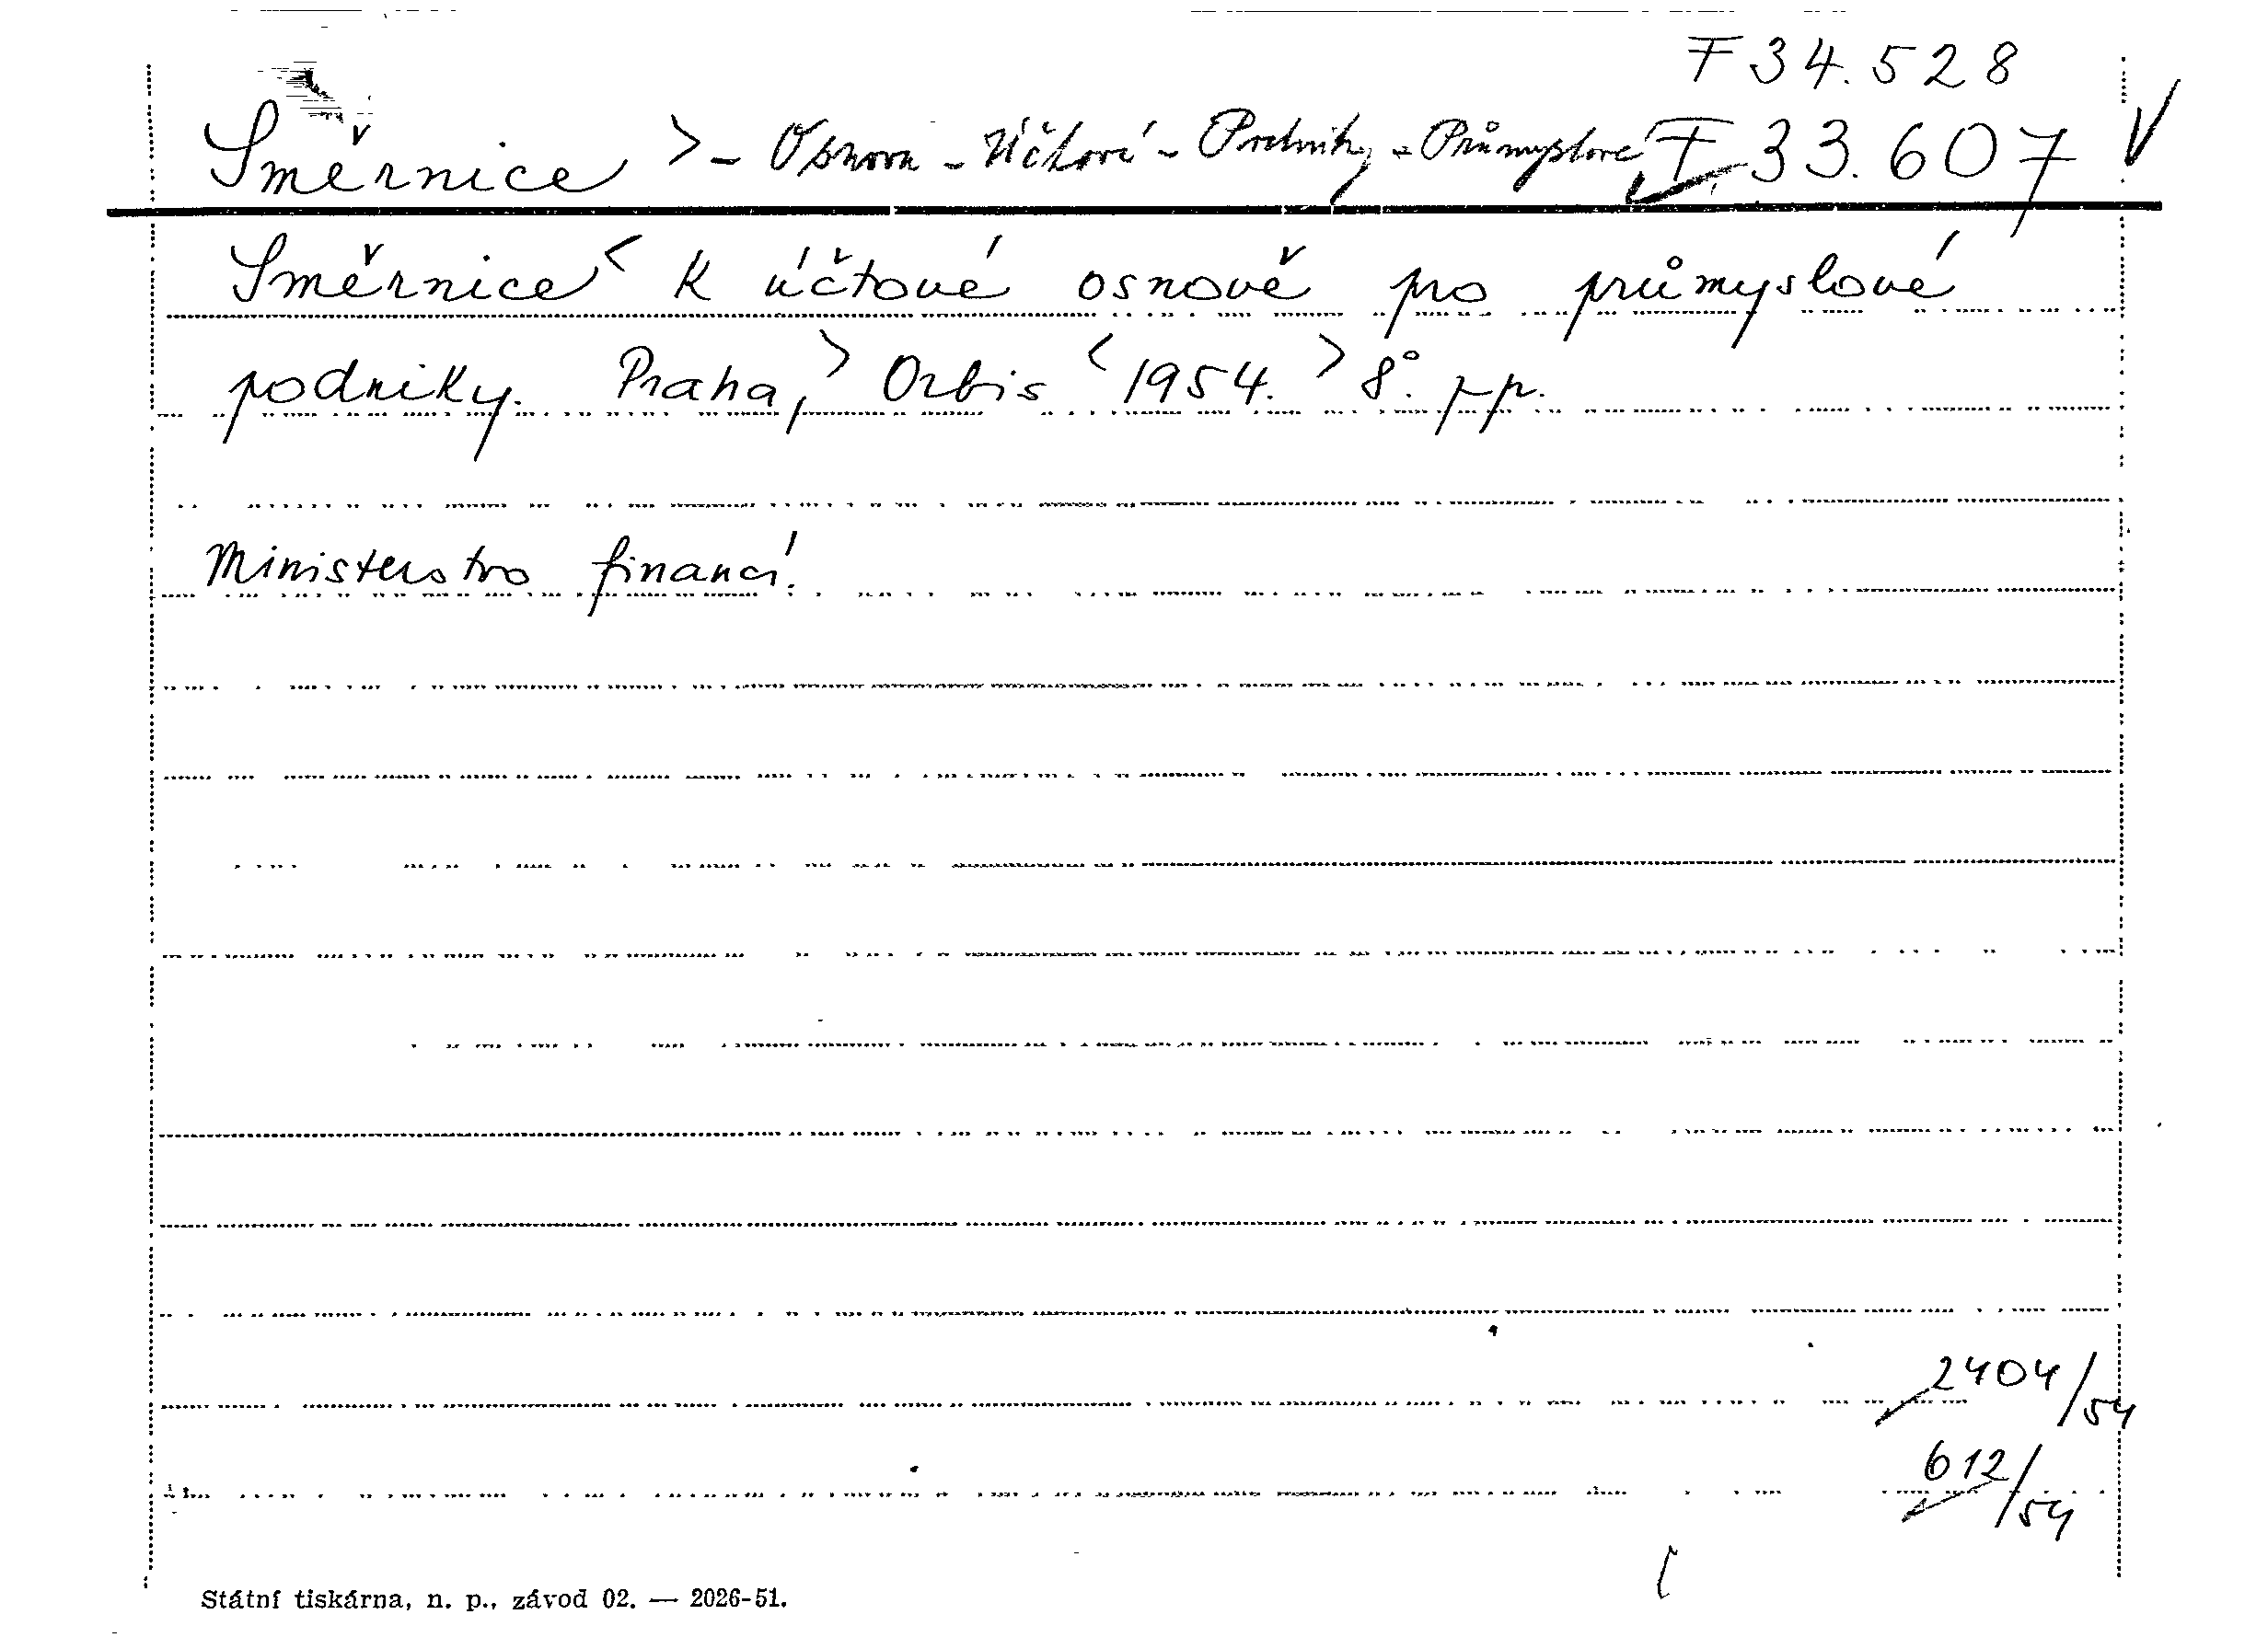 F 34.528
Směrnice > - Osnova - Účtová - Podniky - Průmyslové F 33.607 V
Směrnice < k účtové osnově pro průmyslové
podniky. Praha, > Orbis < 1954. > 8°. pp.
Ministerstvo financí.
2404/54
612/54
Státní tiskárna, n. p., závod 02. — 2026-51.